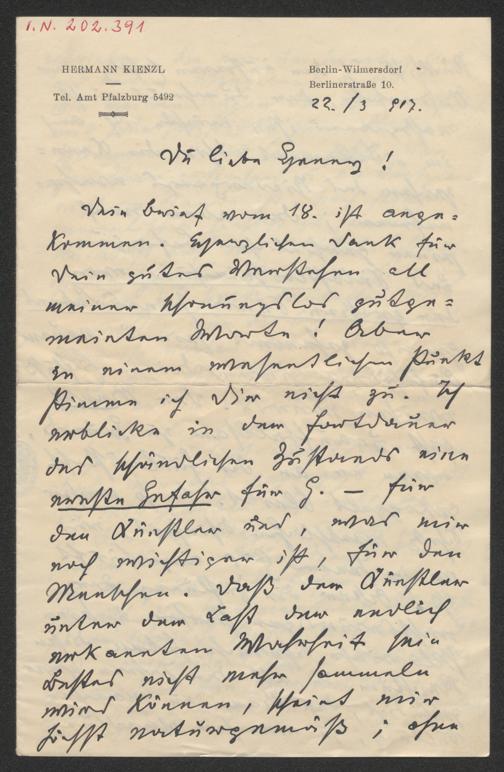 I.N. 202.391
HERMANN KIENZL
Tel. Amt Pfalzburg 5492
Berlin-Wilmersdorf
Berlinerstraße 10.
22./3 917.
Du liebe Henny!
Dein Brief vom 18. ist ange=
kommen. Herzlichen Dank für
Dein gutes Verstehen all
meiner schonungslos gutge=
meinten Worte! Aber
in einem wesentlichen Punkt
stimme ich Dir nicht zu. Ich
erblicke in der Fortdauer
des schändlichen Zustands eine
ernste Gefahr für H. — für
den Künstler und, was mir
noch wichtiger ist, für den
Menschen. Daß der Künstler
unter der Last der endlich
erkannten Wahrheit sein
Bestes nicht mehr sammeln
wird können, scheint mir
höchst naturgemäß; ohne